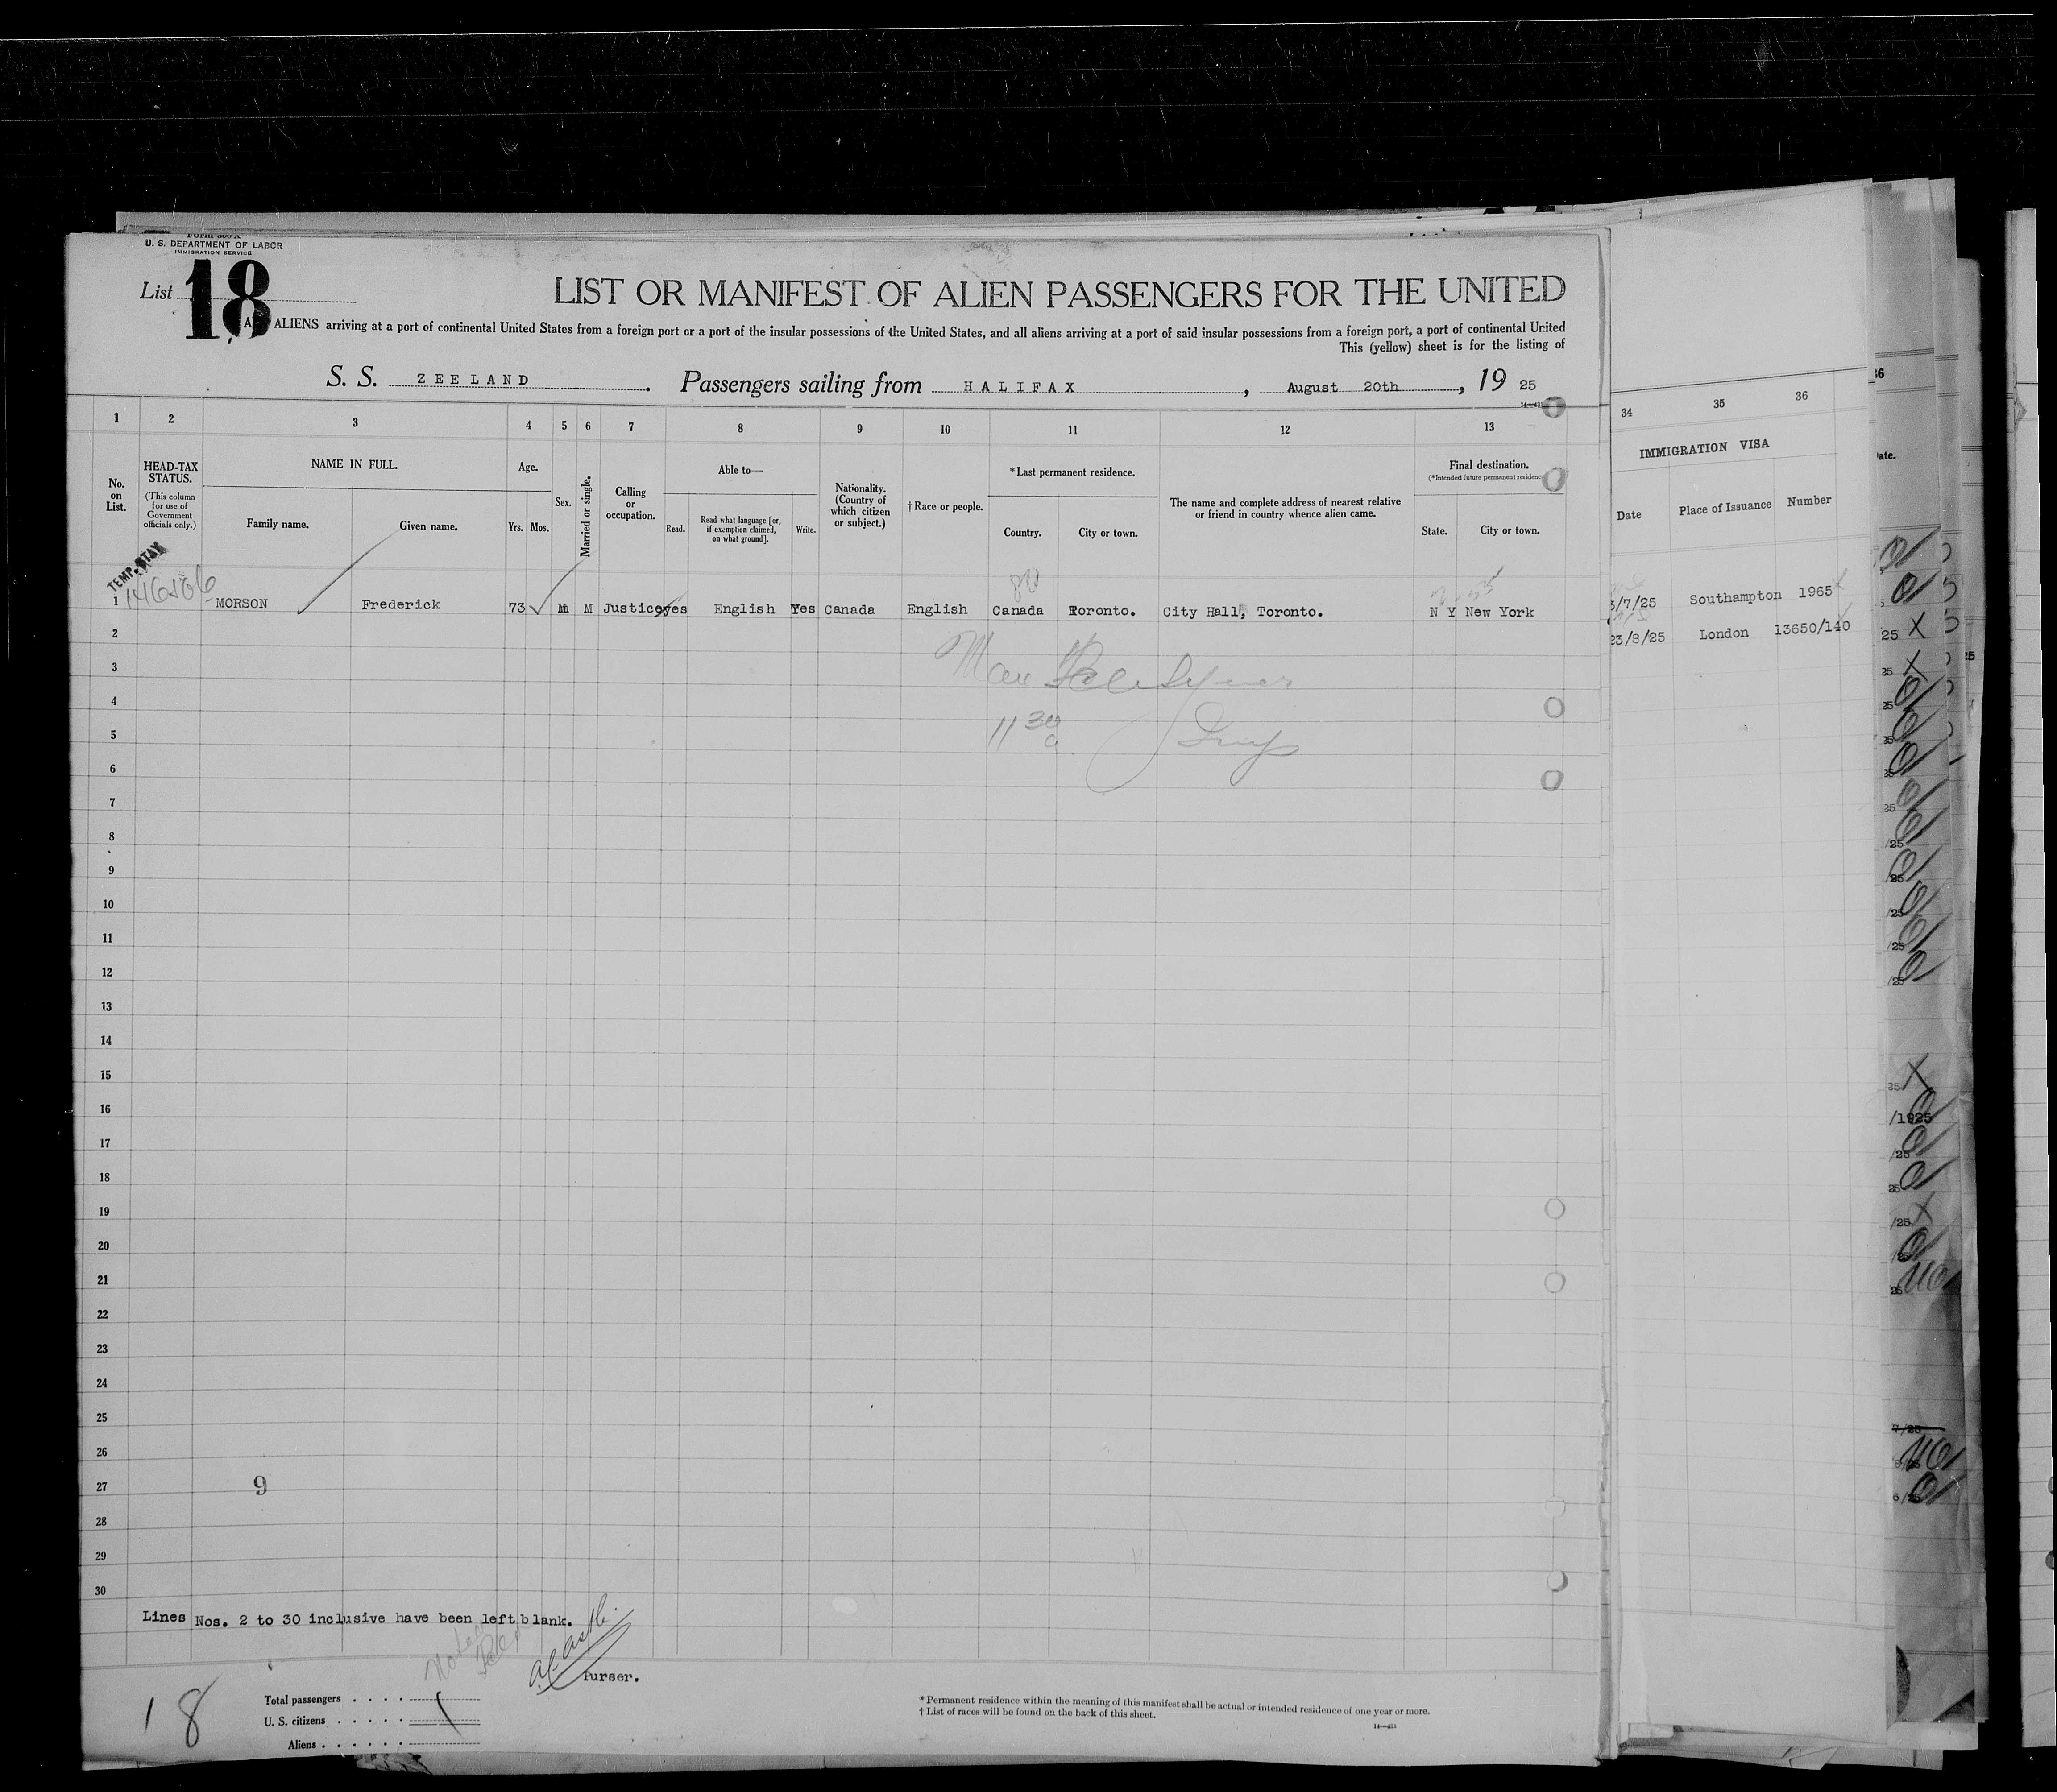 Form 500 A
U. S. DEPARTMENT OF LABOR
IMMIGRATION SERVICE
List 18
LIST OR MANIFEST OF ALIEN PASSENGERS FOR THE UNITED
ALIENS arriving at a port of continental United States from a foreign port or a port of the insular possessions of the United States, and all aliens arriving at a port of said insular possessions from a foreign port, a port of continental United
This (yellow) sheet is for the listing of
S. S. ZEELAND. Passengers sailing from HALIFAX, August 20th, 19 25
1 2 3 4 5 6 7 8 9 10 11 12 13
No. on List.
HEAD-TAX STATUS.
(This column for use of Government officials only.)
NAME IN FULL.
Family name. Given name.
Age.
Yrs. Mos.
Sex.
Married or single.
Calling or occupation.
Able to—
Read. Read what language [or, if exemption claimed, on what ground]. Write.
Nationality. (Country of which citizen or subject.)
† Race or people.
*Last permanent residence.
Country. City or town.
The name and complete address of nearest relative or friend in country whence alien came.
Final destination.
(*Intended future permanent residence)
State. City or town.
34 35 36
IMMIGRATION VISA
Date Place of Issuance Number
TEMP. STAY
1 MORSON Frederick 73 M M Justice yes English Yes Canada English Canada Toronto. City Hall, Toronto. N Y New York
3/7/25 Southampton 1965
23/8/25 London 13650/140
2
3
4
11 30 a
5
6
7
8
9
10
11
12
13
14
15
16
17
18
19
20
21
22
23
24
25
26
27
9
28
29
30
Lines Nos. 2 to 30 inclusive have been left blank.
Purser.
18
Total passengers . . . .
U. S. citizens . . . . .
Aliens . . . . . .
* Permanent residence within the meaning of this manifest shall be actual or intended residence of one year or more.
† List of races will be found on the back of this sheet.